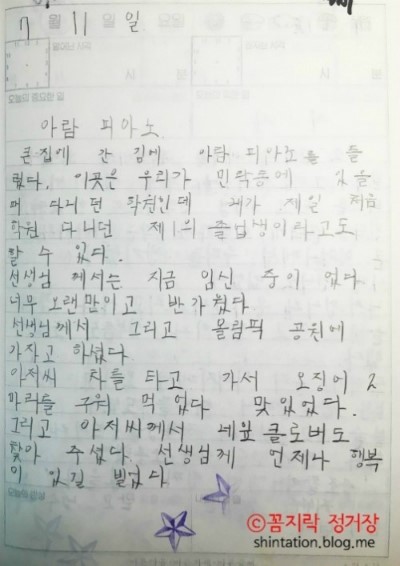 7 11 일
아람 피아노
큰집에 간 김에 아람 피아노를 들
렀다. 이곳은 우리가 민락동에 있을
때 다니던 학원인데 내가 제일 처음
학원 다니던 제1의 졸업생이라고도
할 수 있다.
선생님 께서는 지금 임신 중이 었다
너무 오랜만이고 반가웠다
선생님께서 그리고 올림픽 공원에
가자고 하셨다
아저씨 차를 타고 가서 오징어 2
마리를 구워 먹었다 맛있었다.
그리고 아저씨께서 네잎 클로버도
찾아 주셨다. 선생님께 언제나 행복
이 있길 빌었다
©꼼지락 정거장
shintation.blog.me